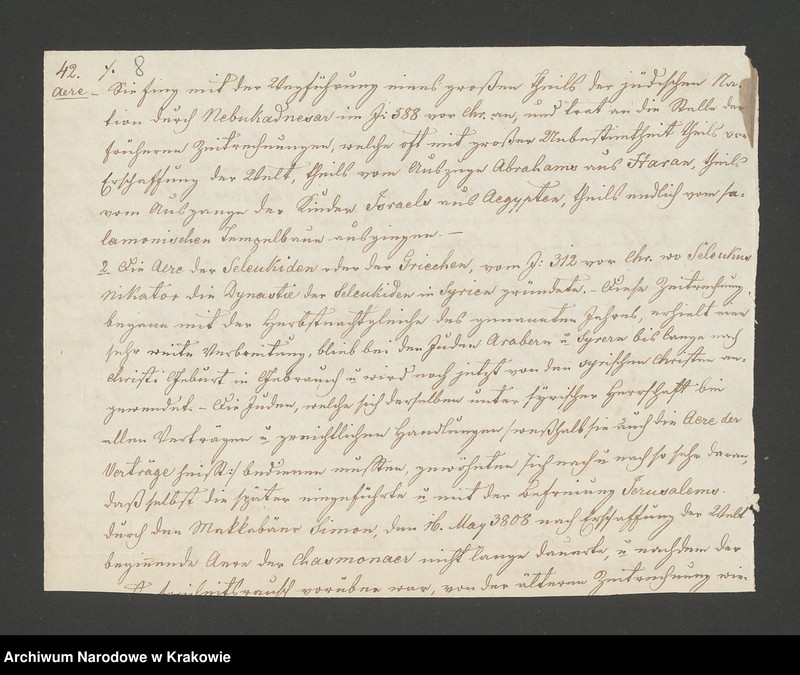 42. ./. 8
Aere – Sie fing mit der Wegführung eines großen Theils der jüdischen Na-
tion durch Nebukadnesar im J: 588 vor Chr. an, und trat an die Stelle der
früheren Zeitrechnungen, welche oft mit großer Unbestimtheit theils von
Erschaffung der Welt, theils vom Auszuge Abrahams aus Haran, theils
vom Ausgange der Kinder Israels aus Aegypten, theils endlich vom sa-
lamonischen Tempelbaue ausgingen. —
2 Die Aere der Seleukiden oder der Griechen, vom J: 312 vor Chr. wo Seleukus
Nikator die Dynastie der Seleukiden in Syrien gründete. – Diese Zeitrechnung
begann mit der Herbstnachtgleiche des genannten Jahres, erhielt eine
sehr weite Verbreitung, blieb bei den Juden Arabern u Syrern bis lange nach
Christi Geburt in Gebrauch u wird noch jetzt von den syrischen Christen an-
gewendet. – Die Juden, welche sich derselben unter syrischer Herrschaft bei
allen Verträgen u gerichtlichen Handlungen /:weßhalb sie auch die Aere der
Verträge heißt:/ bedienen mußten, gewöhnten sich nach u nach so sehr daran,
daß selbst die später eingeführte u mit der Befreiung Jerusalems
durch den Makkabäer Simon, den 16. May 3808 nach Erschaffung der Welt
beginnende Aere der Chasmonaer nicht lange dauerte, u nachdem der
Freiheitsrausch vorüber war, von der älteren Zeitrechnung wie-
Archiwum Narodowe w Krakowie